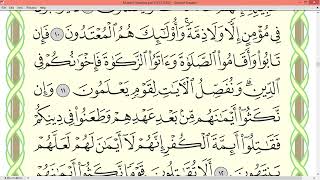 فِى مُؤْمِنٍ إِلًّا وَلَا ذِمَّةً ۚ وَأُو۟لَـٰٓئِكَ هُمُ ٱلْمُعْتَدُونَ ١٠ فَإِن
تَابُوا۟ وَأَقَامُوا۟ ٱلصَّلَوٰةَ وَءَاتَوُا۟ ٱلزَّكَوٰةَ فَإِخْوَٰنُكُمْ فِى
ٱلدِّينِ ۗ وَنُفَصِّلُ ٱلْـَٔايَـٰتِ لِقَوْمٍ يَعْلَمُونَ ١١ وَإِن
نَّكَثُوٓا۟ أَيْمَـٰنَهُم مِّنۢ بَعْدِ عَهْدِهِمْ وَطَعَنُوا۟ فِى دِينِكُمْ
فَقَـٰتِلُوٓا۟ أَئِمَّةَ ٱلْكُفْرِ ۙ إِنَّهُمْ لَآ أَيْمَـٰنَ لَهُمْ لَعَلَّهُمْ
يَنتَهُونَ ١٢ أَلَا تُقَـٰتِلُونَ قَوْمًا نَّكَثُوٓا۟